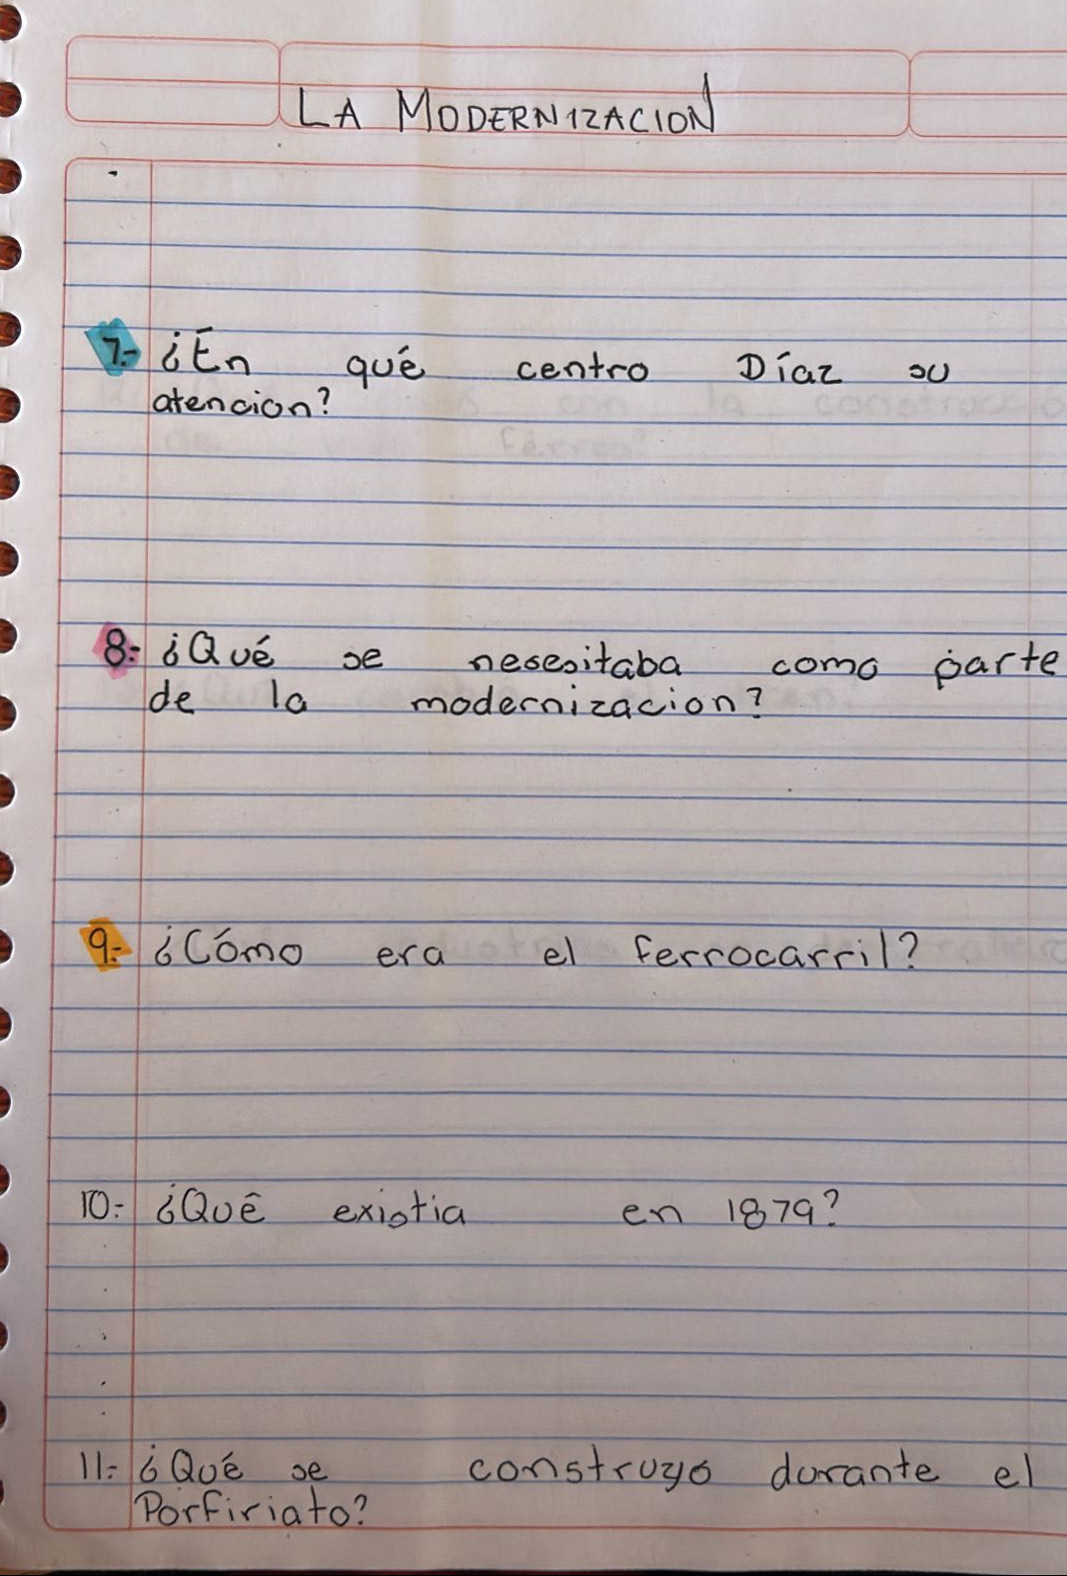 LA MODERNIZACION
7.- ¿En qué centro Díaz su
atencion?
8.- ¿Qué se nesesitaba como parte
de la modernizacion?
9.- ¿Cómo era el ferrocarril?
10.- ¿Qué existia en 1879?
11.- ¿Qué se construyo durante el
Porfiriato?